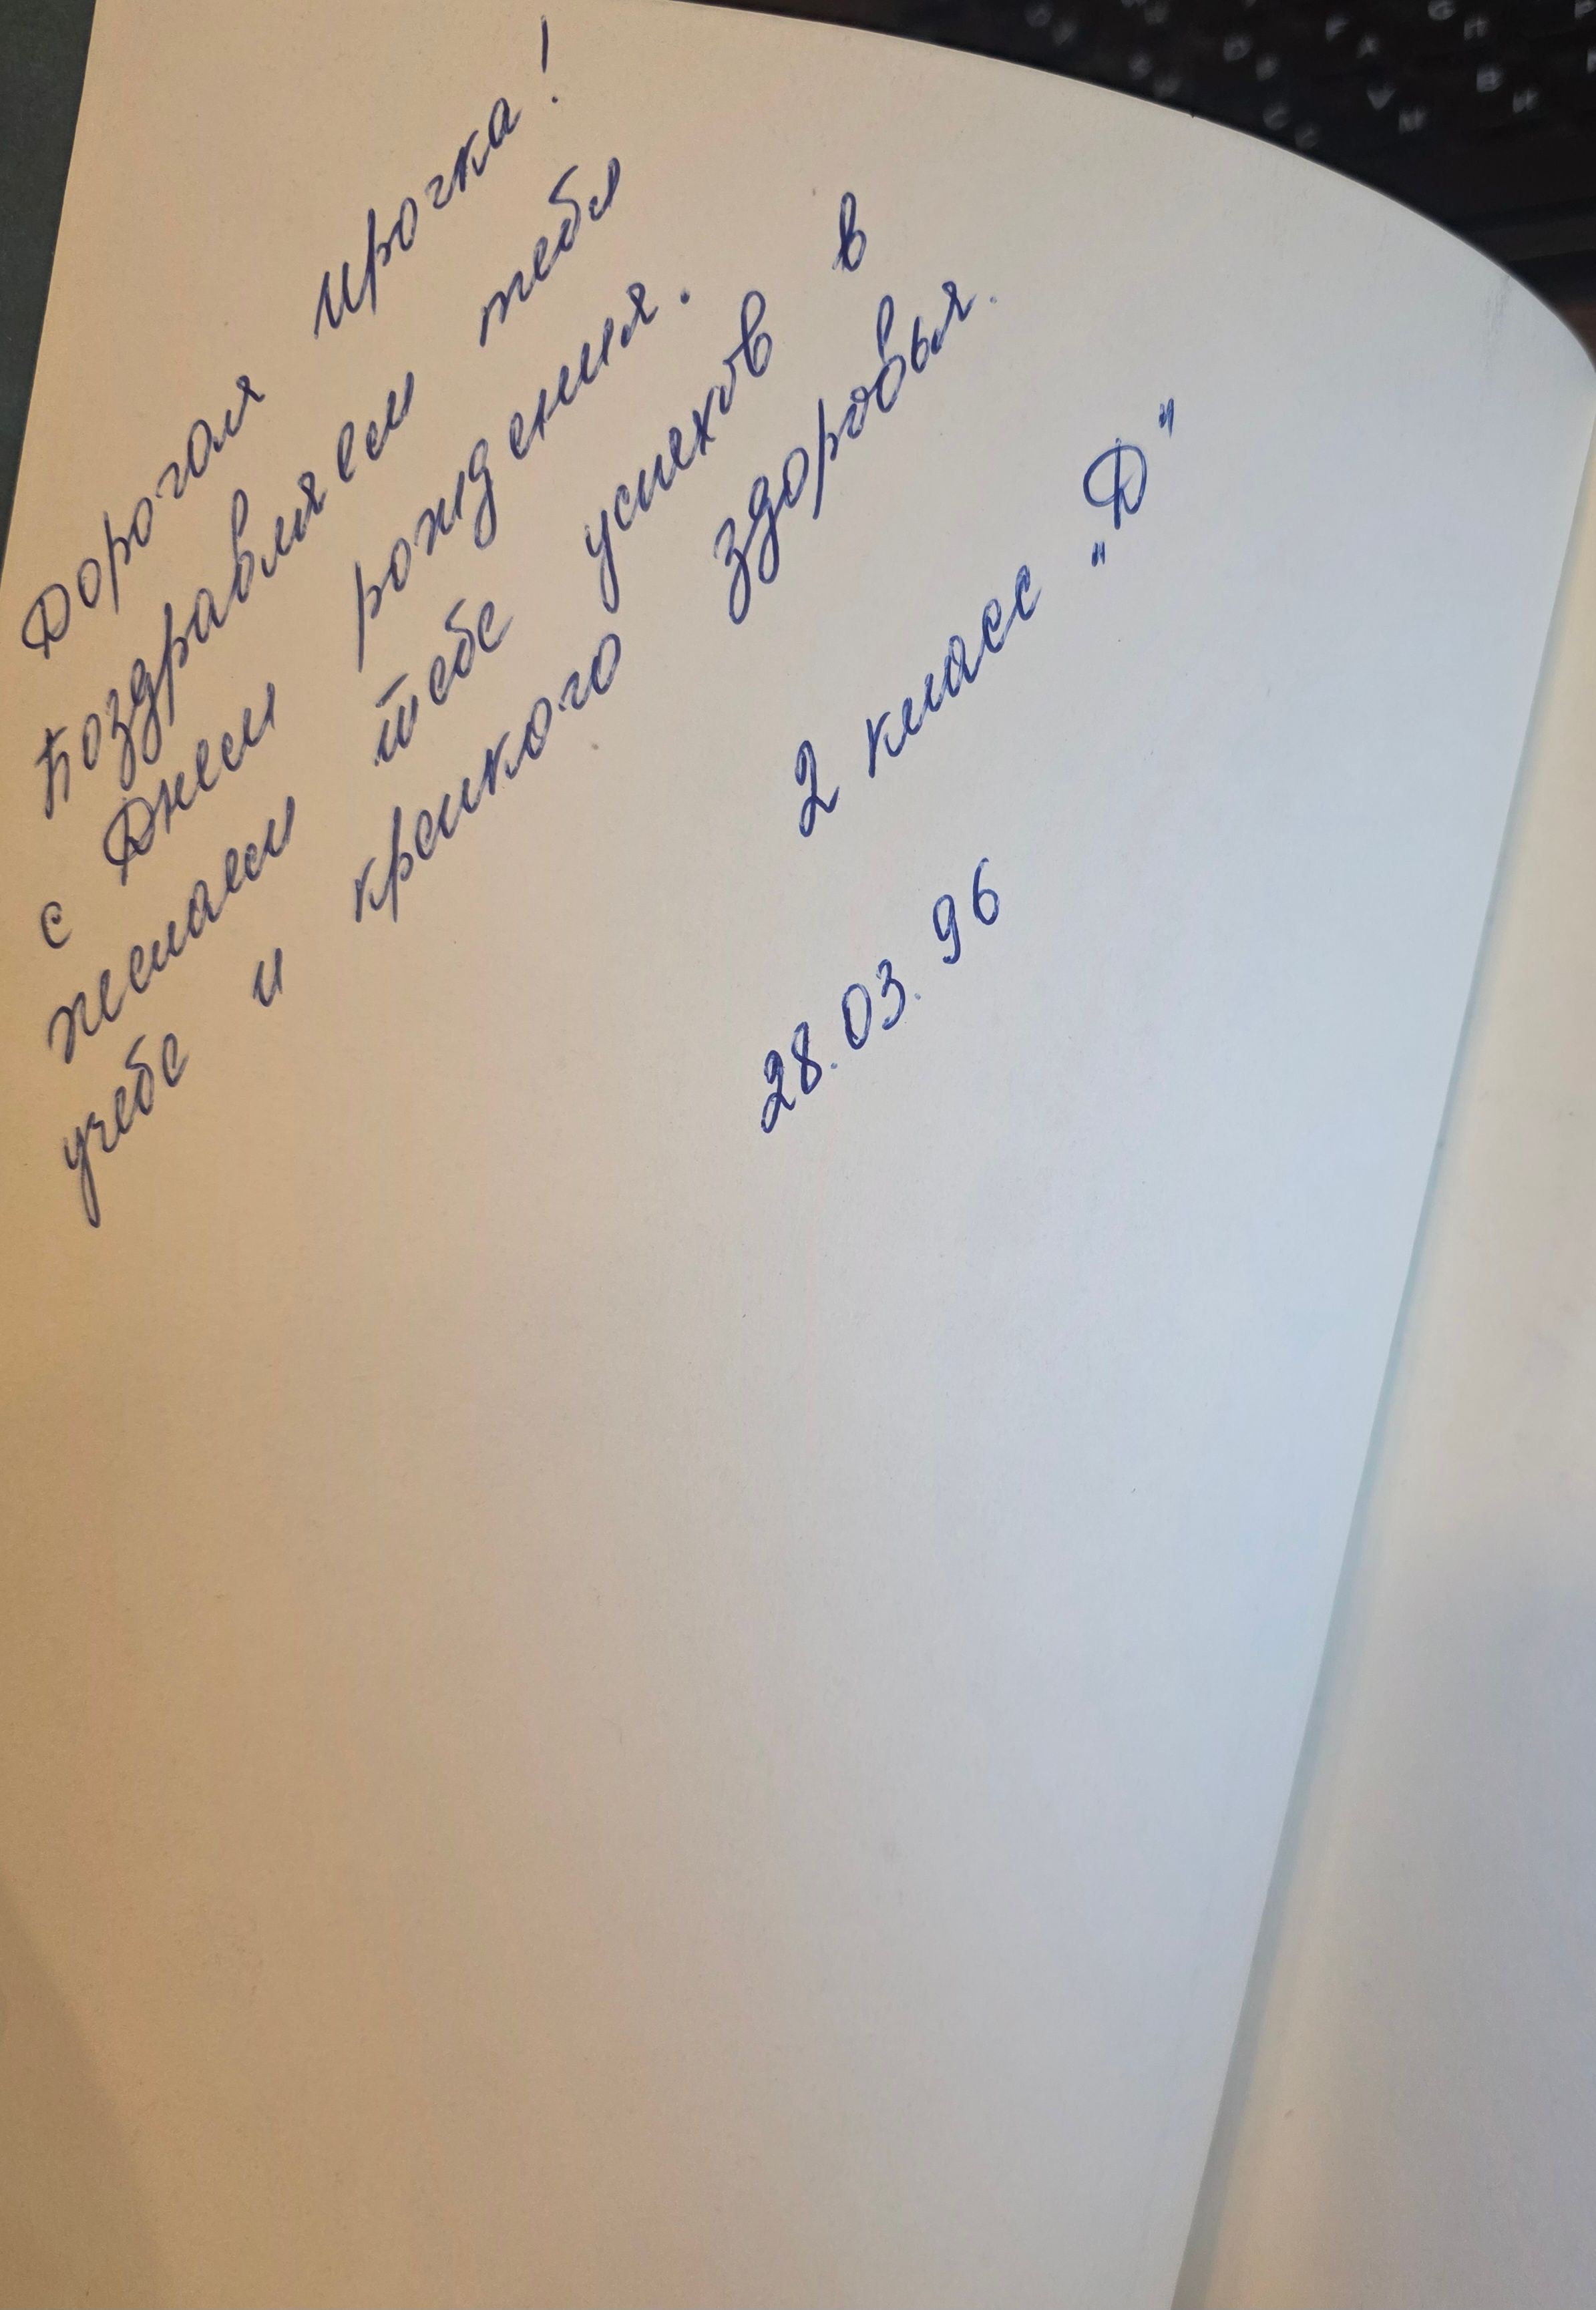 Дорогая Ирочка!
Поздравляем тебя
с Днем рождения.
желаем тебе успехов в
учебе и крепкого здоровья.
2 класс "Д"
28.03.96